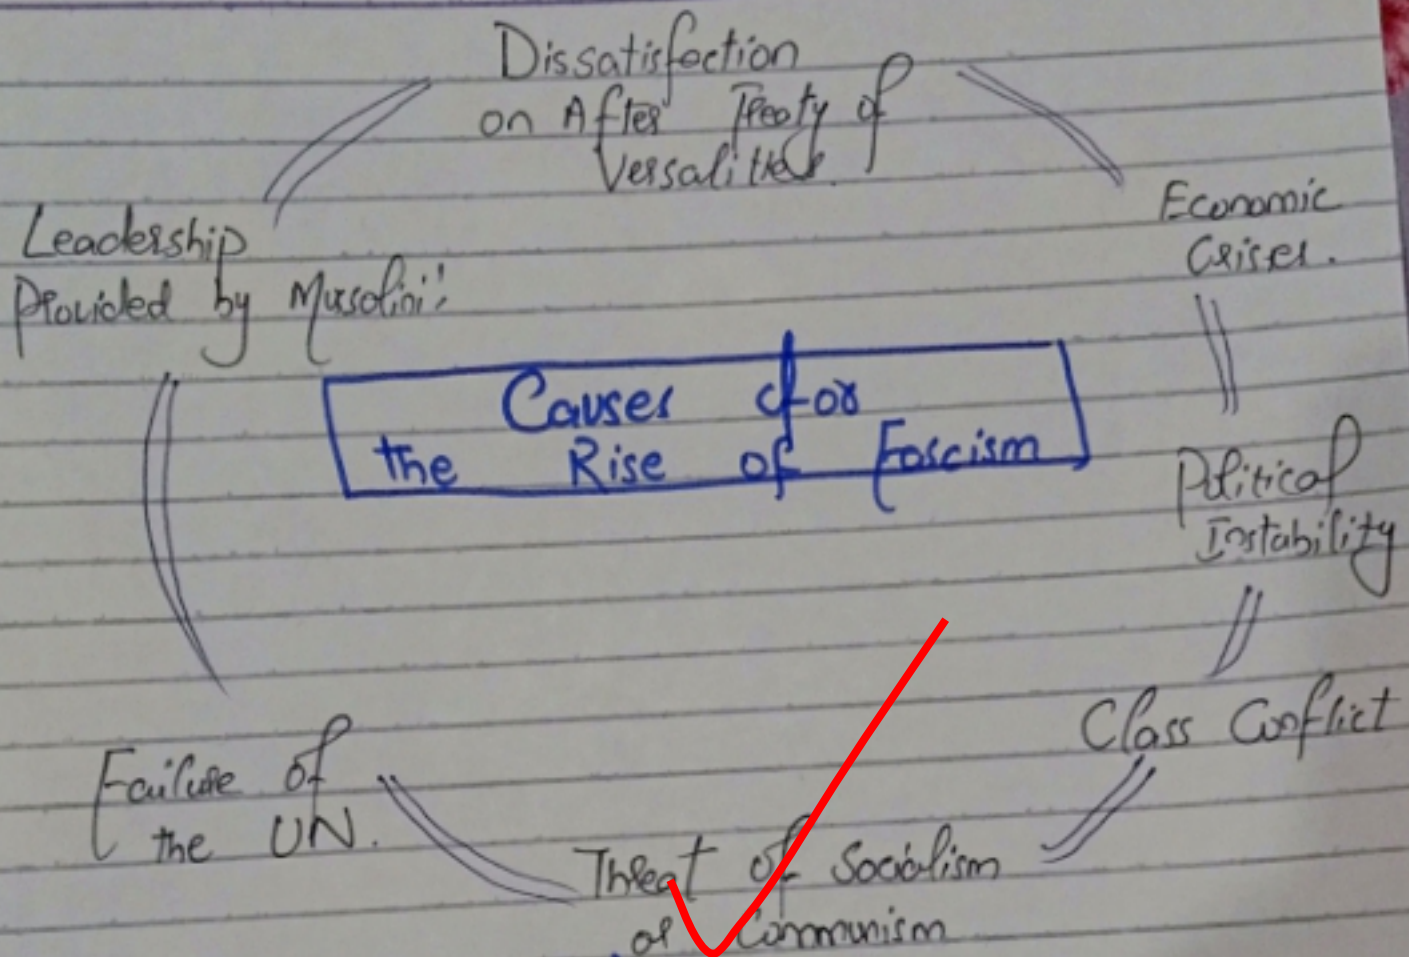 Dissatisfaction
on After Treaty of
Economic
Crises.
Political
Instability
Class Conflict
Threat of Socialism
or Communism
Failure of
the UN.
Leadership
Provided by Musolini
Causes for
the Rise of Fascism